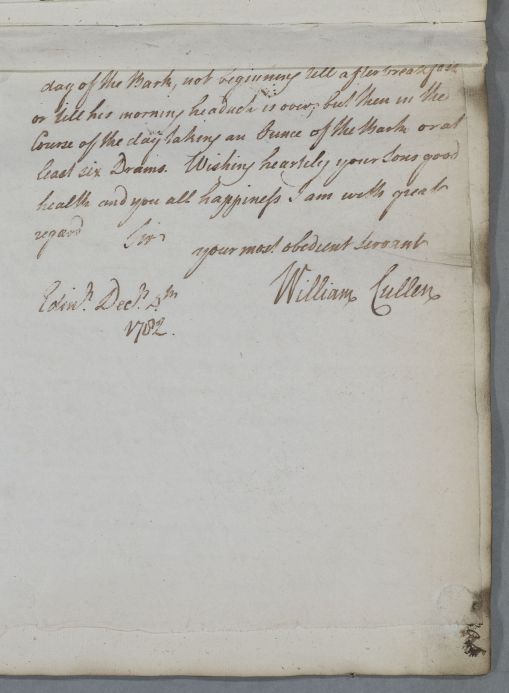 day of the Bark, not beginning till after breakfast
or till his morning headach is over, but then in the
Course of the day taking an Ounce of the Bark or at
least six Drams. Wishing heartily your Sons good
health and you all happiness I am with great
regard Sir
your most obedient servant
William Cullen
Edinr. Decr. 4th
1782.